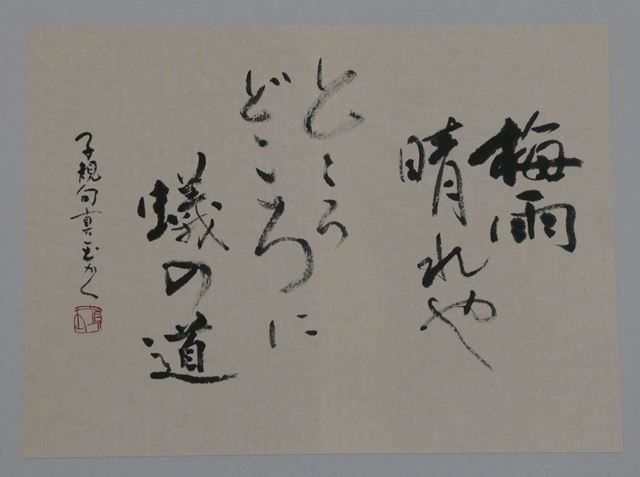 梅雨
晴れや
ところ
どころに
蟻の道
子規句真玉かく